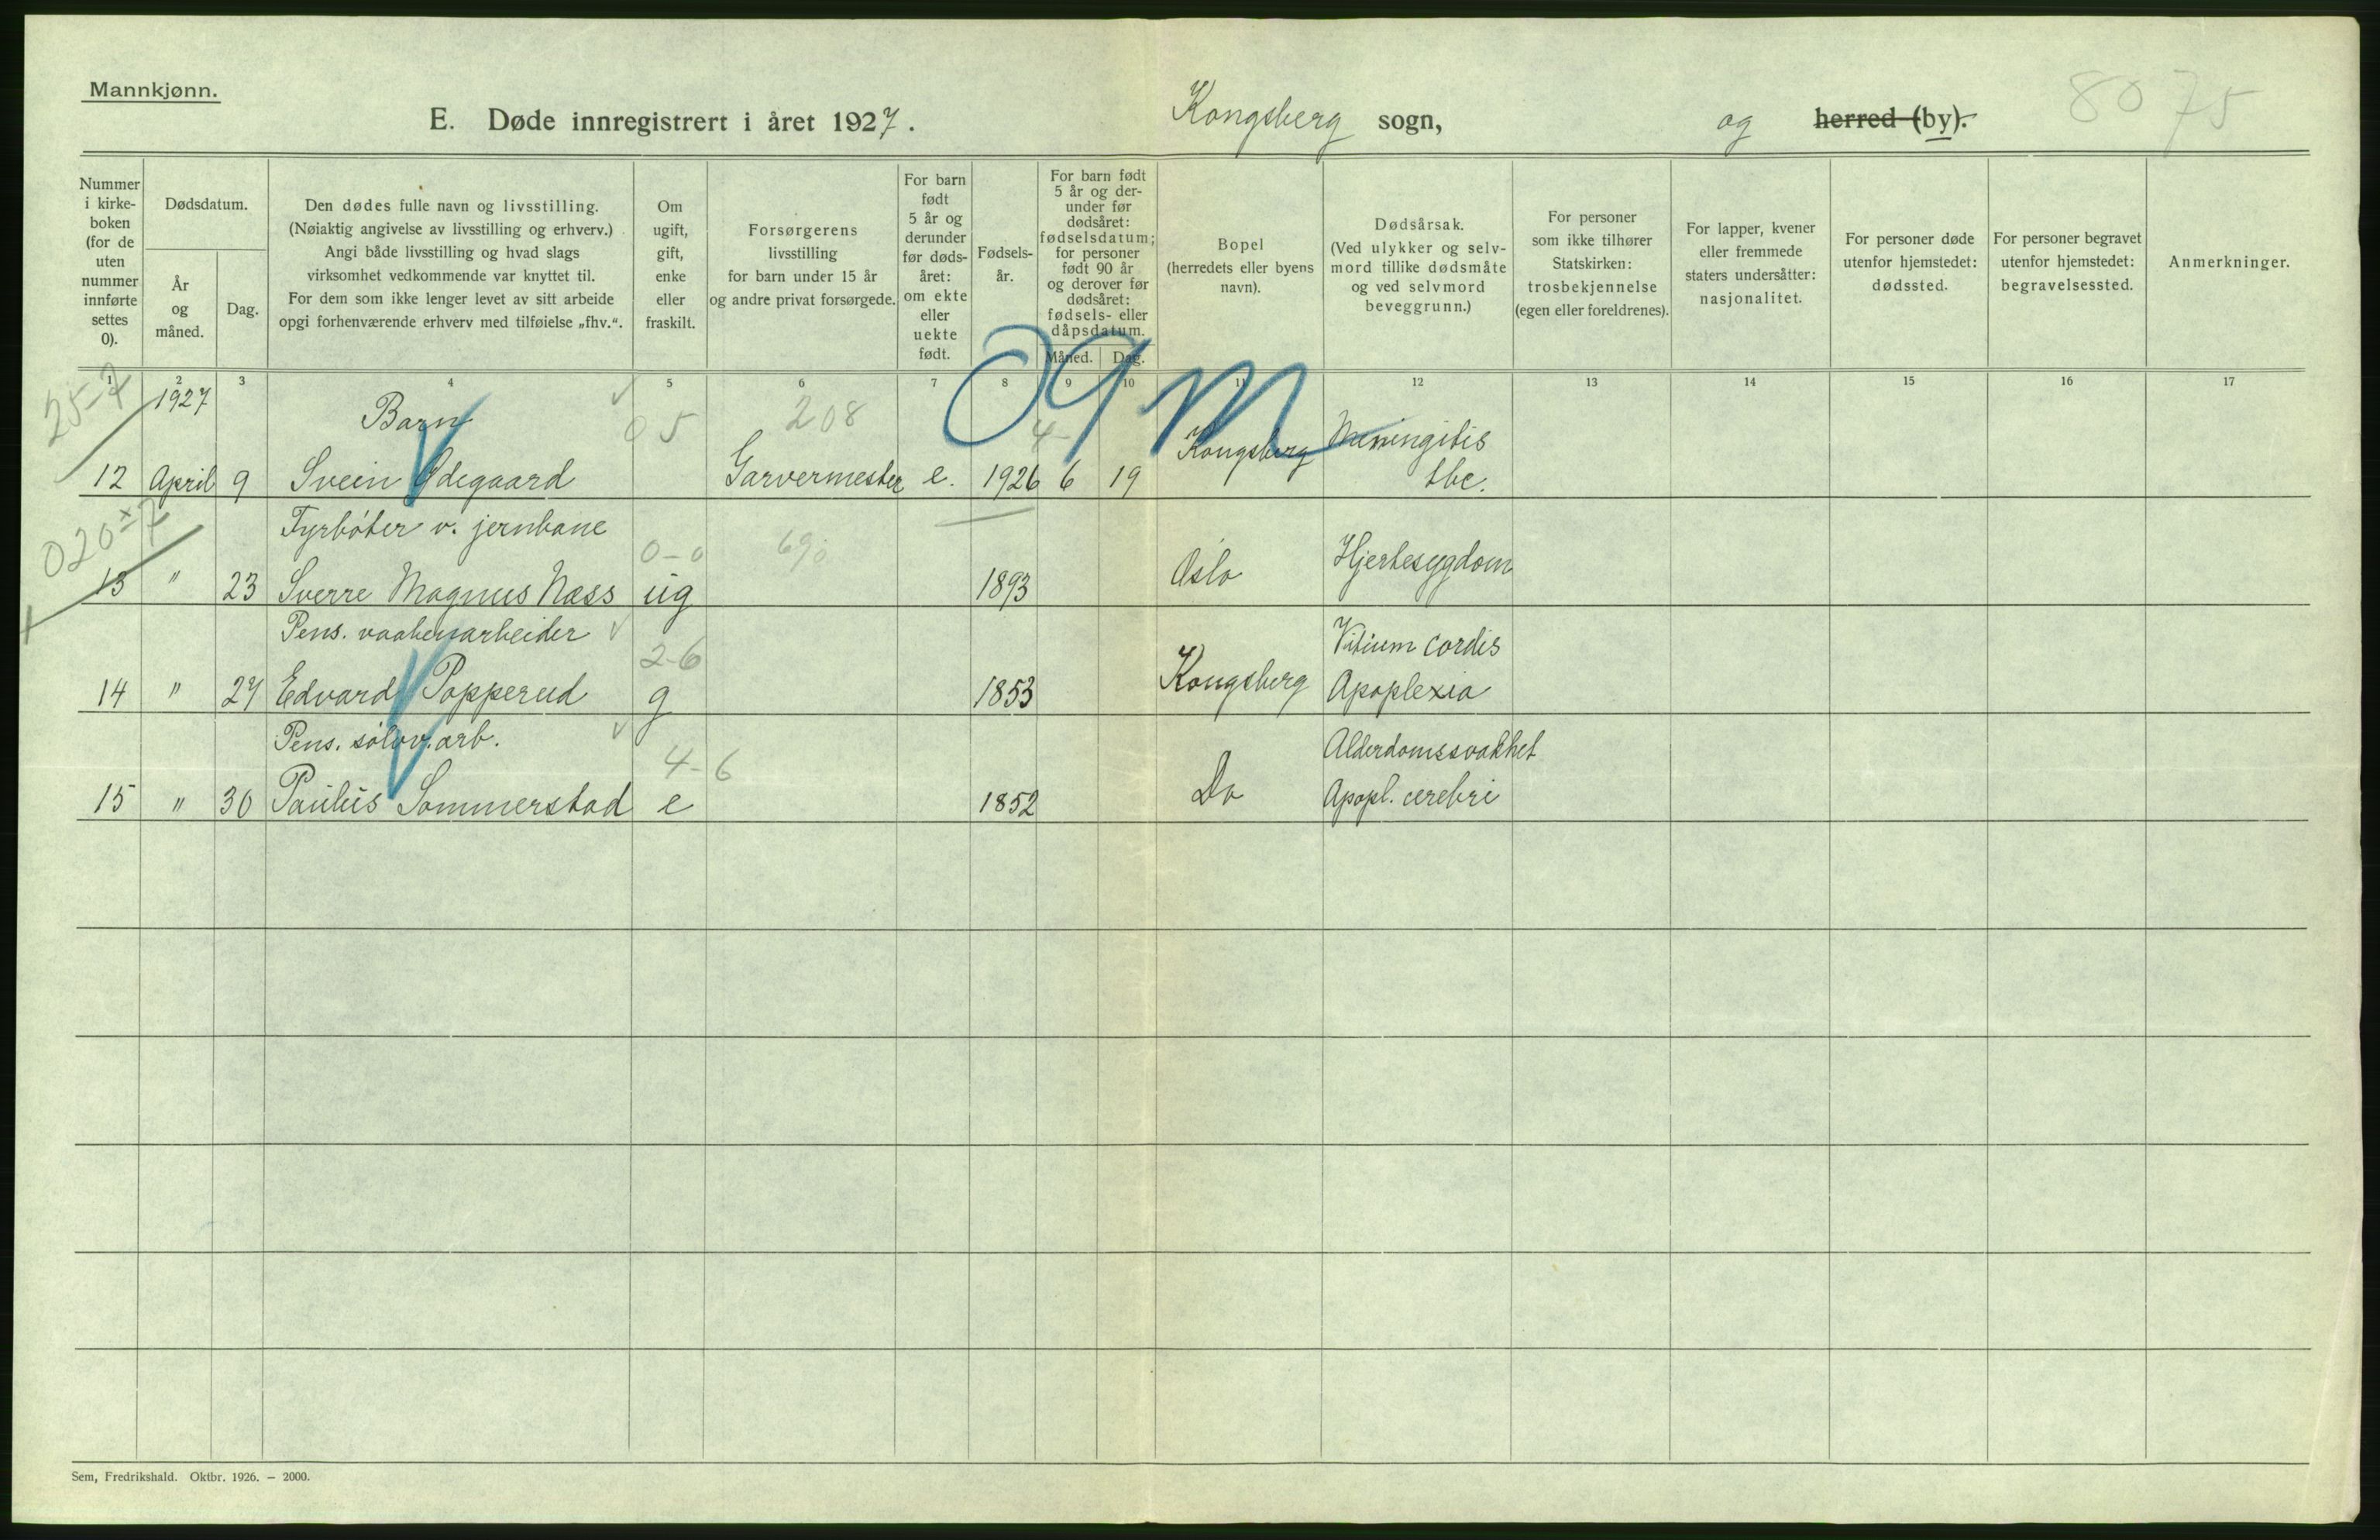 Mannkjønn.
E. Døde innregistrert i året 1927.
Kongsberg sogn,
og herred (by).
80 75
Nummer i kirke-boken (for de uten nummer innførte settes 0).
Dødsdatum.
År og måned.
Dag.
Den dødes fulle navn og livsstilling.
(Nøiaktig angivelse av livsstilling og erhverv.)
Angi både livsstilling og hvad slags
virksomhet vedkommende var knyttet til.
For dem som ikke lenger levet av sitt arbeide
opgi forhenværende erhverv med tilføielse „fhv.“.
Om ugift, gift, enke eller fraskilt.
Forsørgerens
livsstilling
for barn under 15 år
og andre privat forsørgede.
For barn født 5 år og derunder før døds-året: om ekte eller uekte født.
Fødsels-år.
For barn født 5 år og der-under før dødsåret: fødselsdatum; for personer født 90 år og derover før dødsåret: fødsels- eller dåpsdatum.
Måned. Dag.
Bopel
(herredets eller byens
navn).
Dødsårsak.
(Ved ulykker og selv-
mord tillike dødsmåte
og ved selvmord
beveggrunn.)
For personer
som ikke tilhører
Statskirken:
trosbekjennelse
(egen eller foreldrenes).
For lapper, kvener
eller fremmede
staters undersåtter:
nasjonalitet.
For personer døde
utenfor hjemstedet:
dødssted.
For personer begravet
utenfor hjemstedet:
begravelsessted.
Anmerkninger.
1 2 3 4 5 6 7 8 9 10 11 12 13 14 15 16 17
09 M
25-7
1927 Barn 05 208 4- Kongsberg Meningitis
12 April 9 Svein Ødegaard Garvermester e. 1926 6 19 tbc.
020±7
Fyrbøter v. jernbane 0-0 690 Oslo Hjertesygdom
13 " 23 Sverre Magnus Næss ug 1893
Pens. vaabenarbeider 2-6 Vitium cordis
14 " 27 Edvard Popperud g 1853 Kongsberg Apoplexia
Pens. sølvv. arb. 4-6 Alderdomssvakhet
15 " 30 Paulus Sommerstad e 1852 Do Apopl. cerebri
Sem, Fredrikshald. Oktbr. 1926. – 2000.